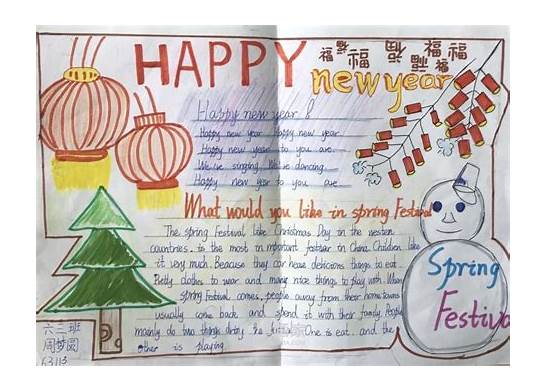 HAPPY
福 福 福 福 福 福 福
new year
Happy new year 8
Happy new year Happy new year
Happy new year to you are
We're singing We're dancing
Happy new year to you are
What would you like in spring Festival
The spring Festival like Christmas Day in the western
countries. is the most in mportant in China Children like
it very much. Because they can hease delicious things to eat
Betty clothes to wear and many nice things to play with. When
spring festival comes, people away from their home towns
usually come back and spend it with their family. People
mainly do two things during the festival One is eat. and the
other is playing
Spring
Festival
六三班
周梦圆
63113